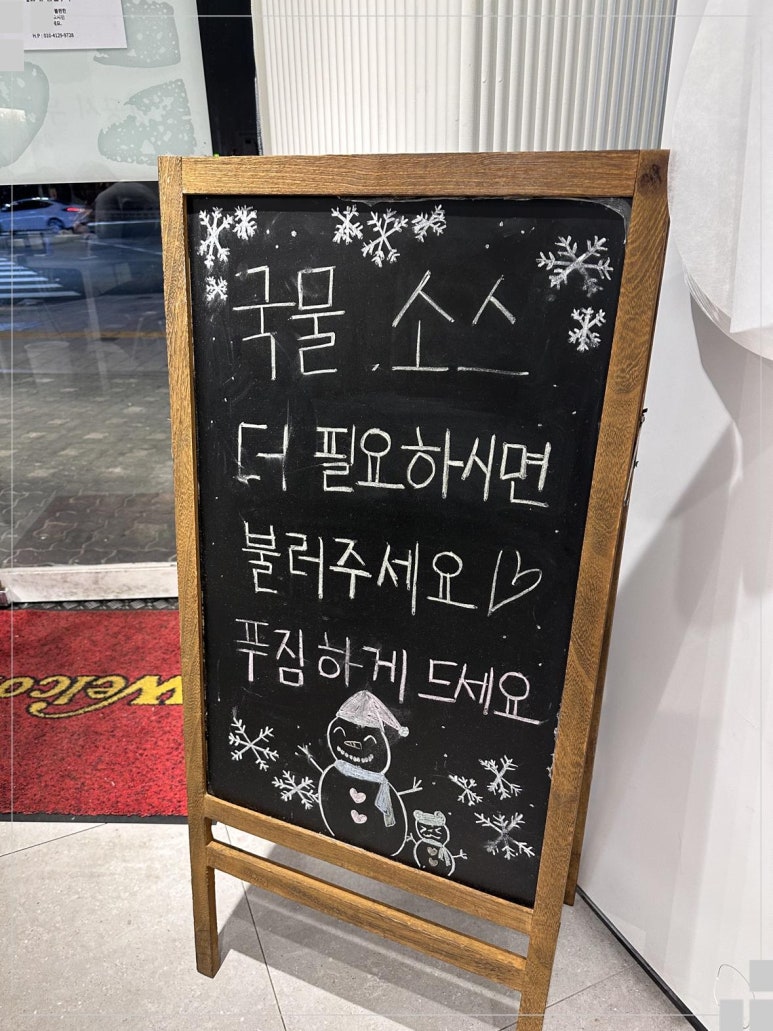 H.P : 010-4129-9728
국물 .소스
더 필요하시면
불러주세요♡
푸짐하게 드세요
Welco